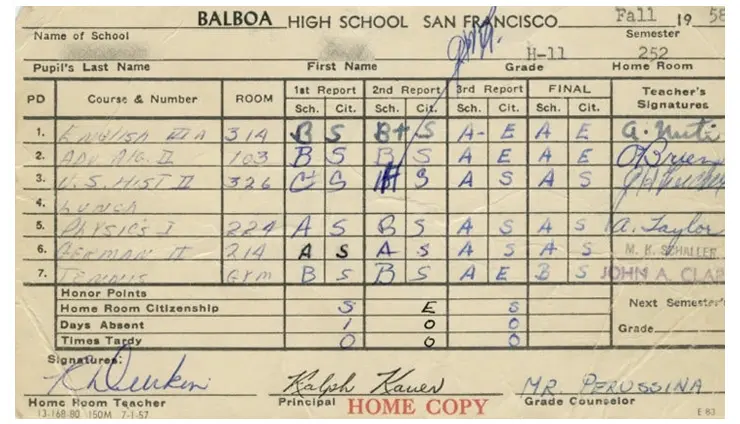 BALBOA HIGH SCHOOL SAN FRANCISCO Fall 19 58
Name of School Semester
H-11 252
Pupil's Last Name First Name Grade Home Room
PD Course & Number ROOM 1st Report 2nd Report 3rd Report FINAL Teacher's Signatures
Sch. Cit. Sch. Cit. Sch. Cit. Sch. Cit.
1. ENGLISH III A 314 B S B+ S A- E A E A. Muti
2. ADV. ALG. II 103 B S B S A E A E O'Brien
3. U.S. HIST II 326 C+ S S A S A S
4. LUNCH
5. PHYSICS I 224 A S B S A S A S A. Taylor
6. GERMAN II 214 A S A- S A S A S M. K. SCHALLER
7. TENNIS GYM B S B S A E B S JOHN A. CLAR
Honor Points
Home Room Citizenship S E S Next Semester's
Days Absent 1 0 0
Times Tardy 0 0 0 Grade
Signatures:
Ralph Kauer MR. PERUSSINA
Home Room Teacher Principal HOME COPY Grade Counselor
13-168-80 150M 7-1-57 E 83